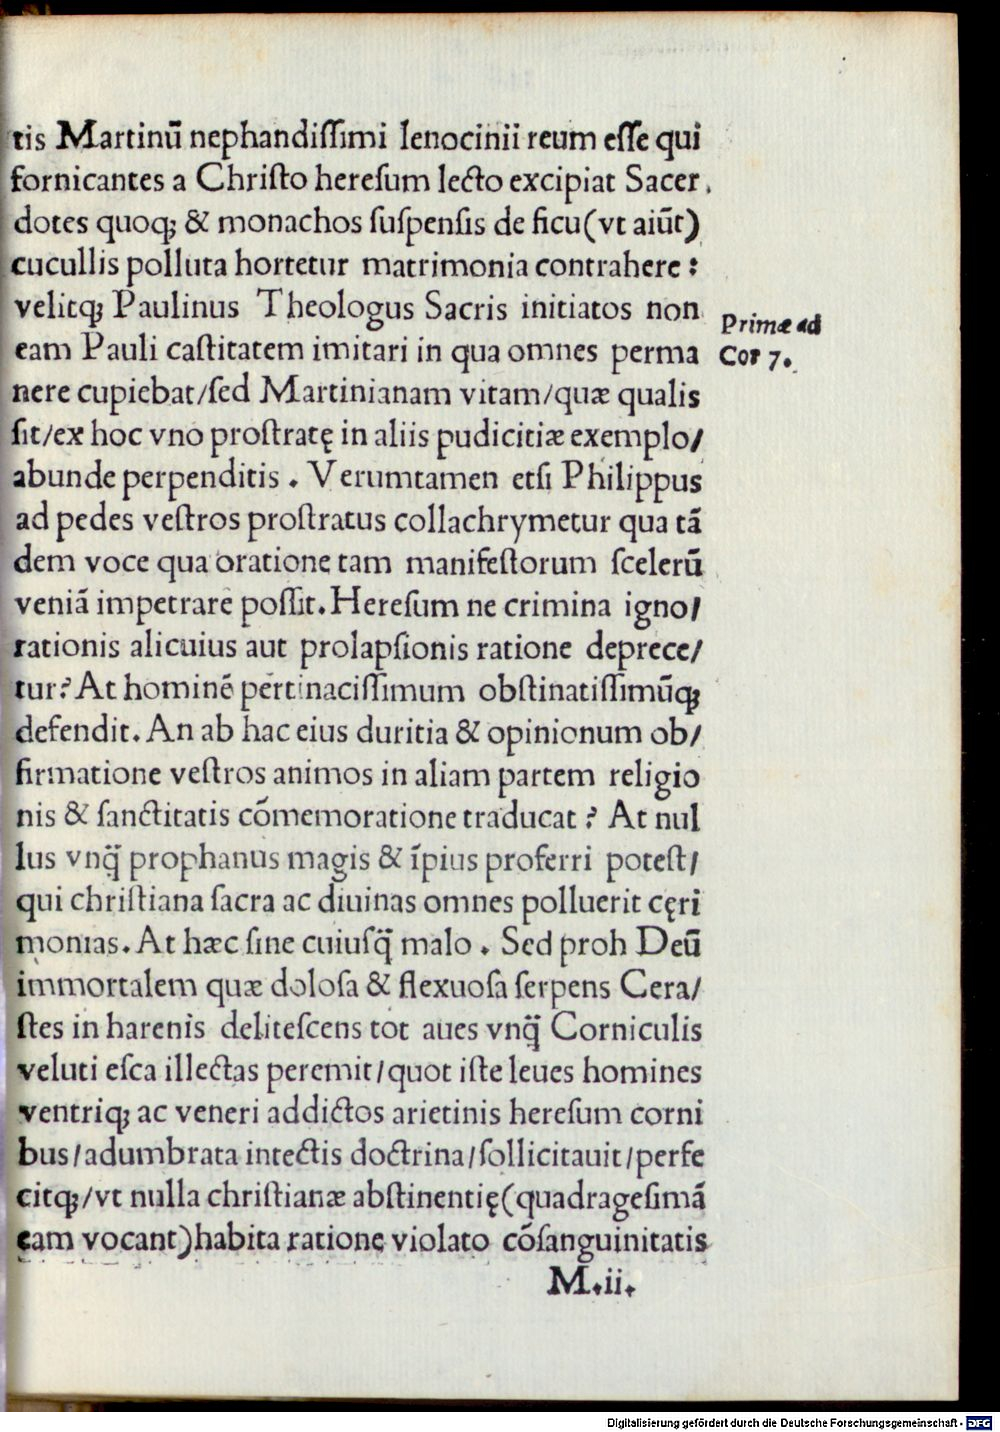 tis Martinū nephandiſſimi lenocinii reum eſſe qui
fornicantes a Chriſto hereſum lecto excipiat Sacer,
dotes quoqꝫ & monachos ſuſpenſis de ficu(vt aiūt)
cucullis polluta hortetur matrimonia contrahere :
velitqꝫ Paulinus Theologus Sacris initiatos non
Primæ ad
eam Pauli caſtitatem imitari in qua omnes perma
Cor 7.
nere cupiebat/ſed Martinianam vitam/quæ qualis
ſit/ex hoc vno proſtratę in aliis pudicitiæ exemplo/
abunde perpenditis . Verumtamen etſi Philippus
ad pedes veſtros proſtratus collachrymetur qua tā
dem voce qua oratione tam manifeſtorum ſcelerū
veniā impetrare poſſit. Hereſum ne crimina igno/
rationis alicuius aut prolapſionis ratione deprece/
tur? At hominē pertinaciſſimum obſtinatiſſimūqꝫ
defendit. An ab hac eius duritia & opinionum ob/
firmatione veſtros animos in aliam partem religio
nis & ſanctitatis cōmemoratione traducat ? At nul
lus vnq̄ prophanus magis & īpius proferri poteſt/
qui chriſtiana ſacra ac diuinas omnes polluerit cęri
monias. At hæc ſine cuiuſq̄ malo . Sed proh Deū
immortalem quæ doloſa & flexuoſa ſerpens Cera/
ſtes in harenis deliteſcens tot aues vnq̄ Corniculis
veluti eſca illectas peremit/quot iſte leues homines
ventriqꝫ ac veneri addictos arietinis hereſum corni
bus/adumbrata intectis doctrina/ſollicitauit/perfe
citqꝫ/vt nulla chriſtianæ abſtinentię(quadrageſimā
eam vocant)habita ratione violato cōſanguinitatis
M.ii.
Digitalisierung gefördert durch die Deutsche Forschungsgemeinschaft - DFG